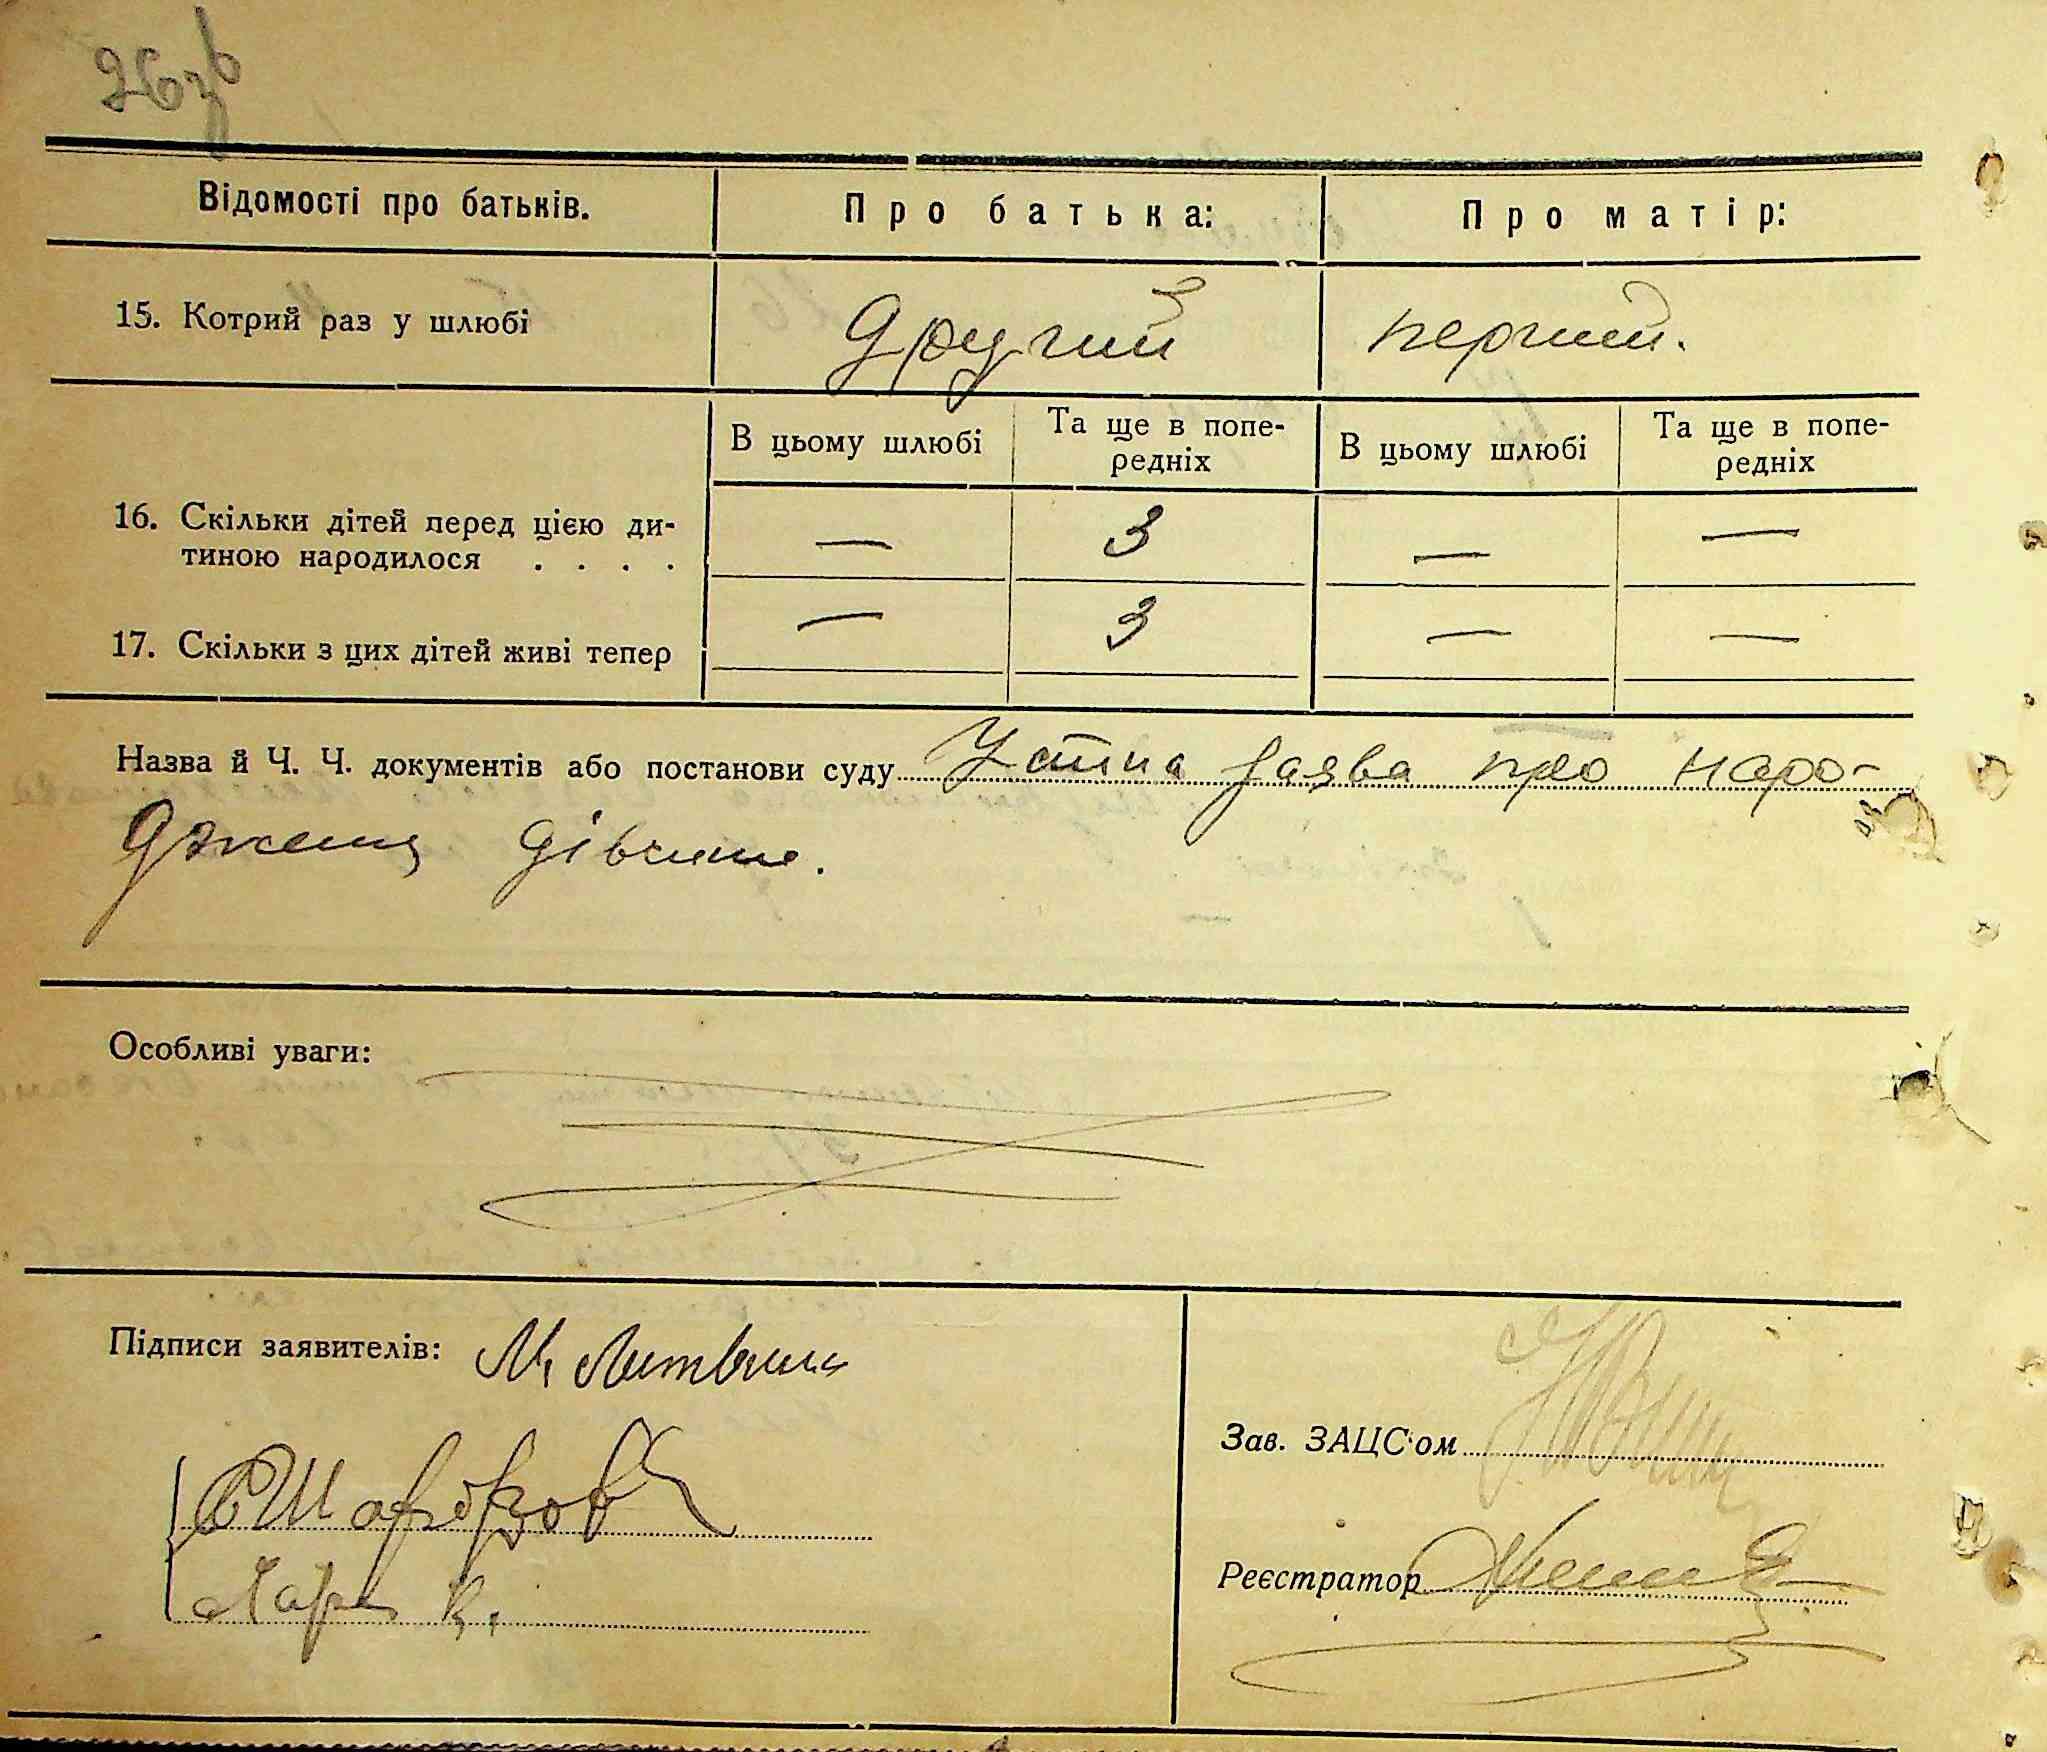 26зв
Відомості про батьків. Про батька: Про матір:
15. Котрий раз у шлюбі другий перший.
В цьому шлюбі Та ще в попе- В цьому шлюбі Та ще в попе-
редніх редніх
16. Скільки дітей перед цією ди-
тиною народилося . . . . — 3 — —
17. Скільки з цих дітей живі тепер — 3 — —
Назва й Ч. Ч. документів або постанови суду Устна заява про наро-
дження дівчини.
Особливі уваги:
Підписи заявителів: М. Литвин
Зав. ЗАЦС'ом
Реєстратор